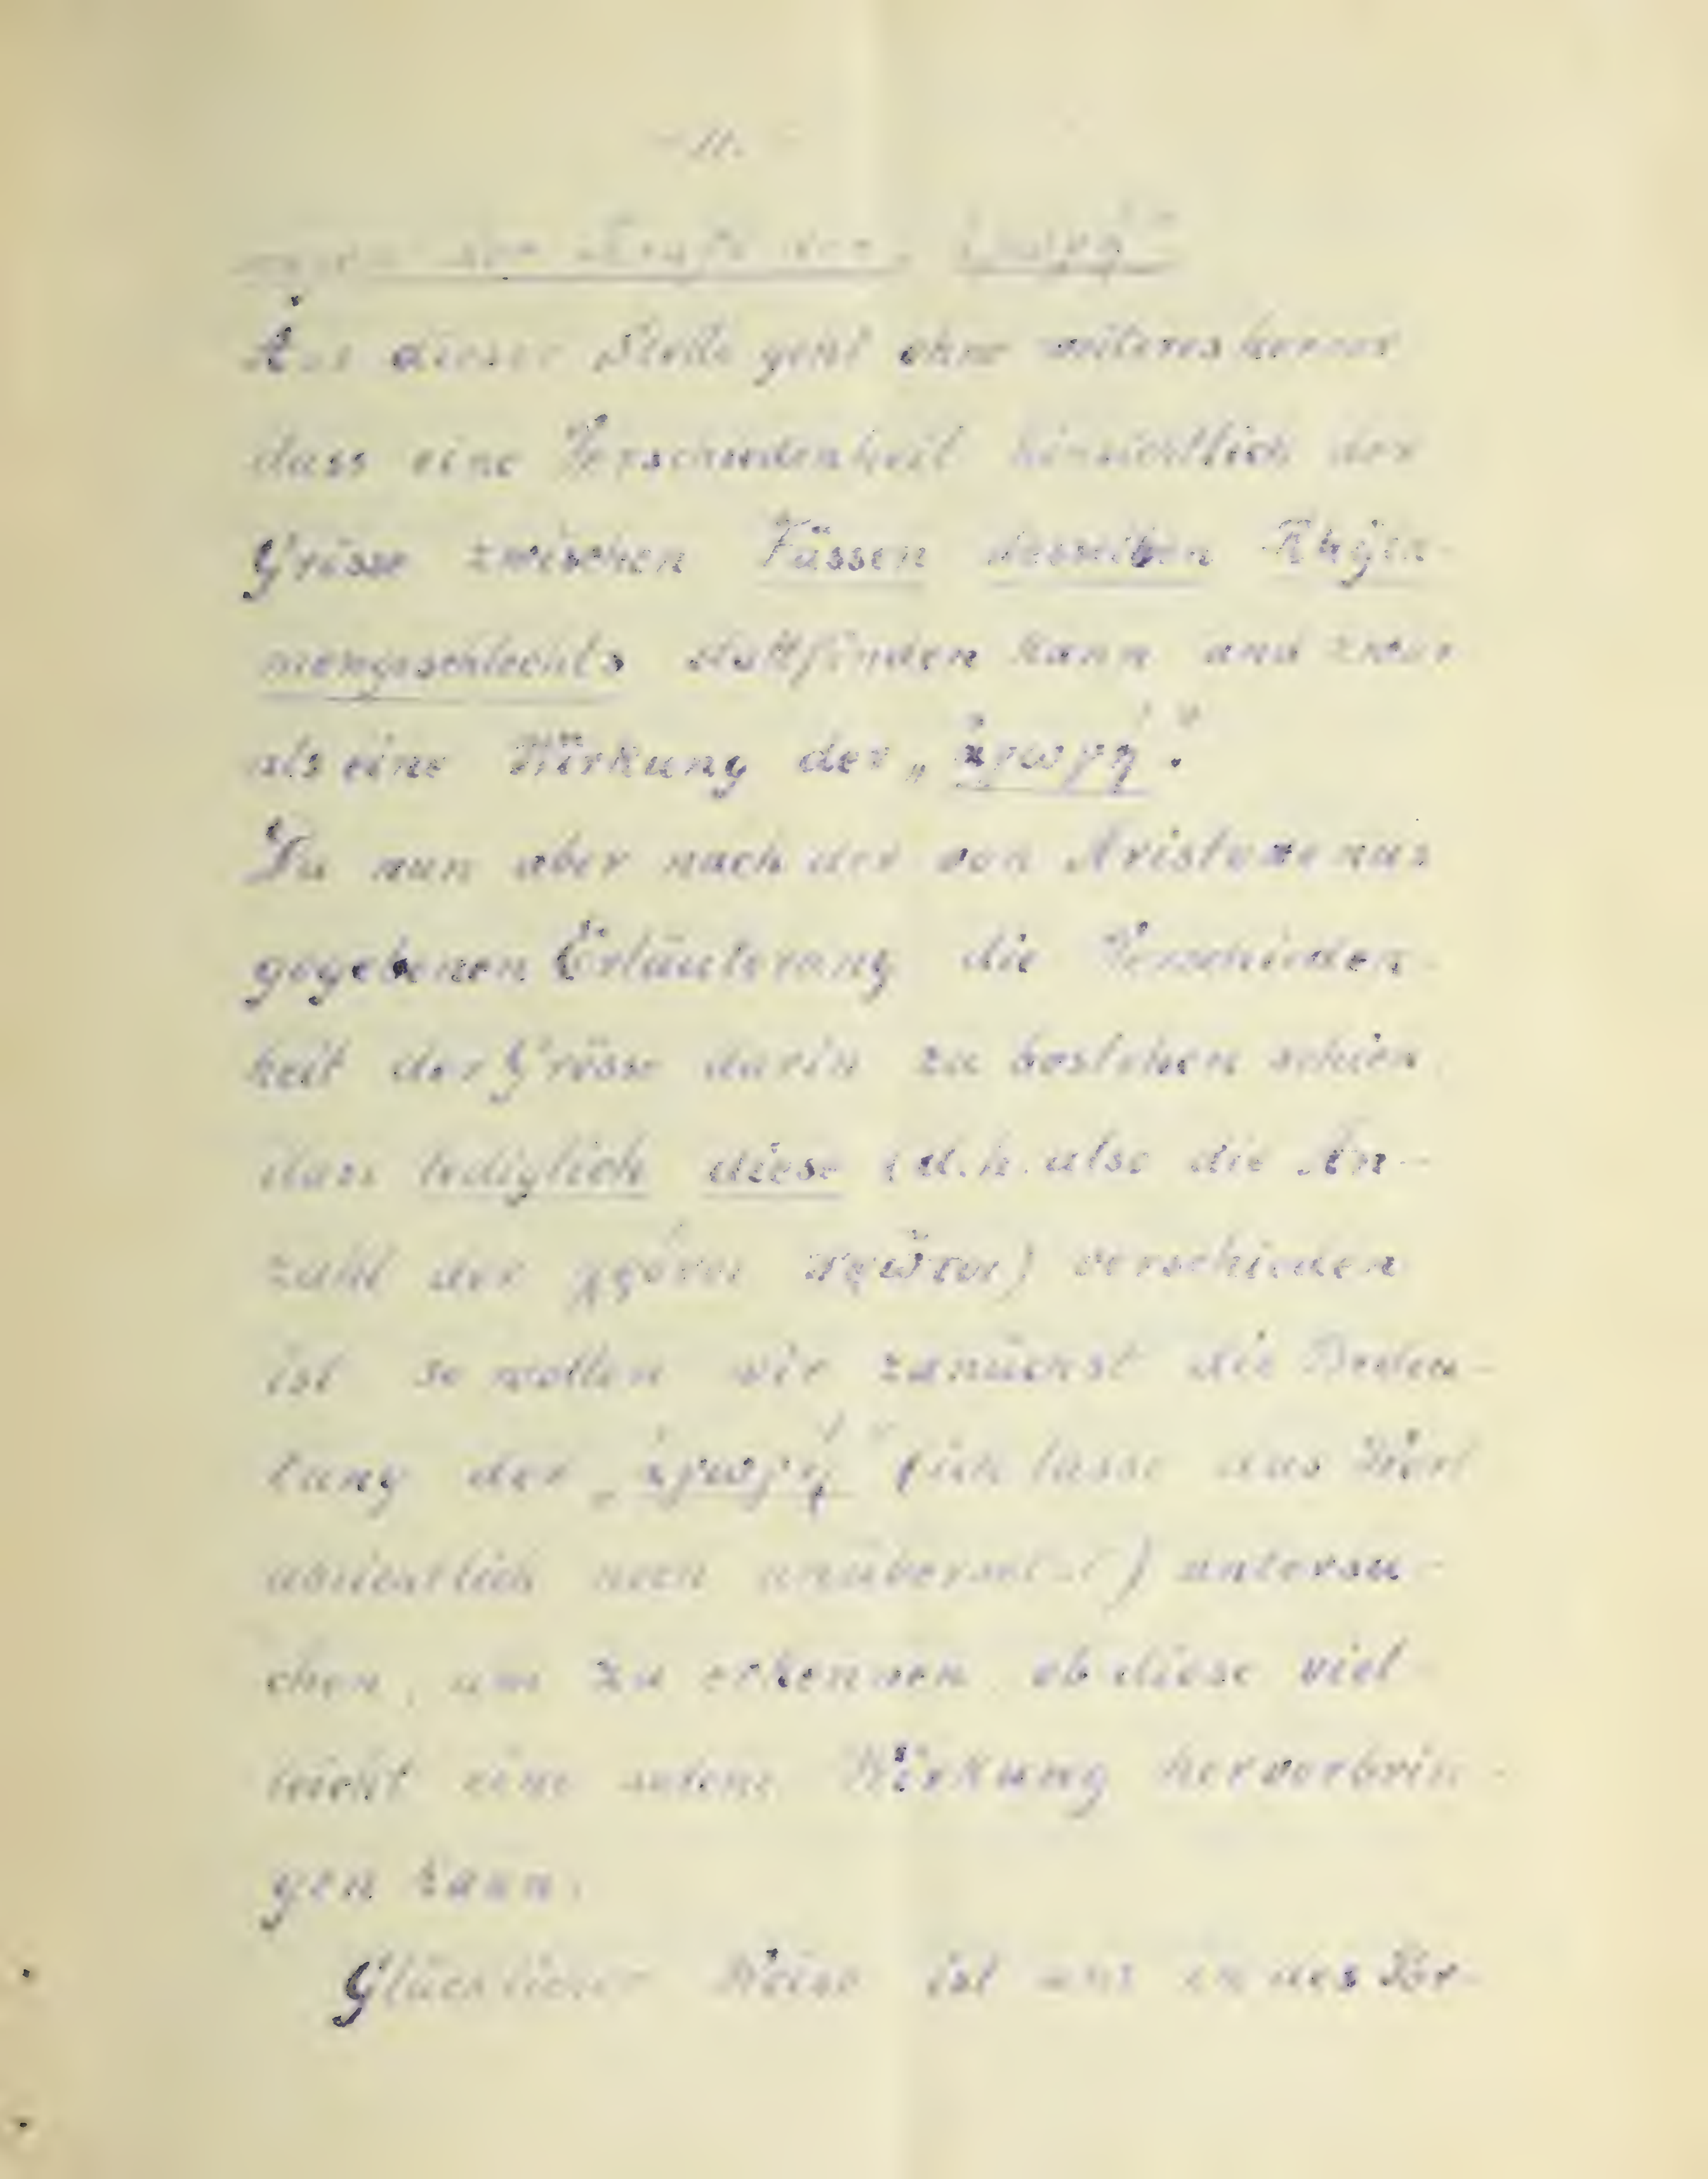 der Kraft der „ἀγωγή“
Aus dieser Stelle geht ohne weiteres hervor
dass eine Verschiedenheit hinsichtlich der
Grösse zwischen Füssen desselben Rhyth-
mengeschlechts stattfinden kann und zwar
als eine Wirkung der „ἀγωγή“.
Da nun aber nach der von Aristoxenus
gegebenen Erläuterung die Verschieden-
heit der Grösse darin zu bestehen schien,
dass lediglich diese (d.h. also die An-
zahl der χρόνοι πρῶτοι) verschieden
ist so wollen wir zunächst die Bedeu-
tung der „ἀγωγή“ (ich lasse das Wort
absichtlich noch unübersetzt) untersu-
chen, um zu erkennen ob diese viel-
leicht eine solche Wirkung hervorbrin-
gen kann.
Glücklicher Weise ist uns in des Por-